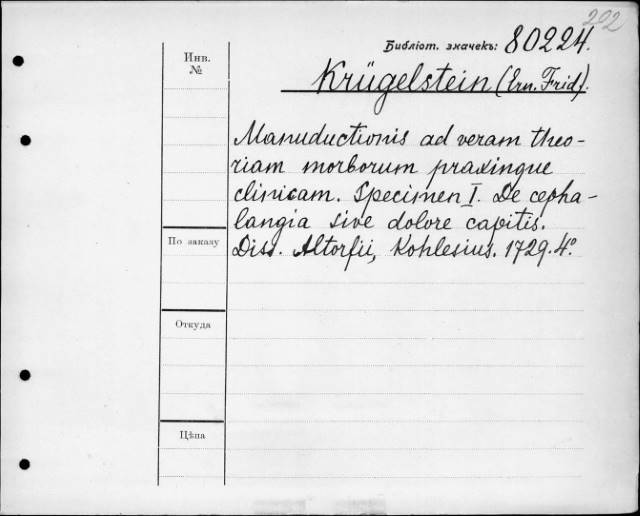 202
Библіот. значекъ: 80224.
Инв.
№
Krügelstein (Ern. Frid).
Manuductionis ad veram theo-
riam morborum praxinque
clinicam. Specimen I. De cepha-
langia sive dolore capitis.
По заказу
Diss. Altorfii, Kohlesius. 1729. 4º
Откуда
Цѣна